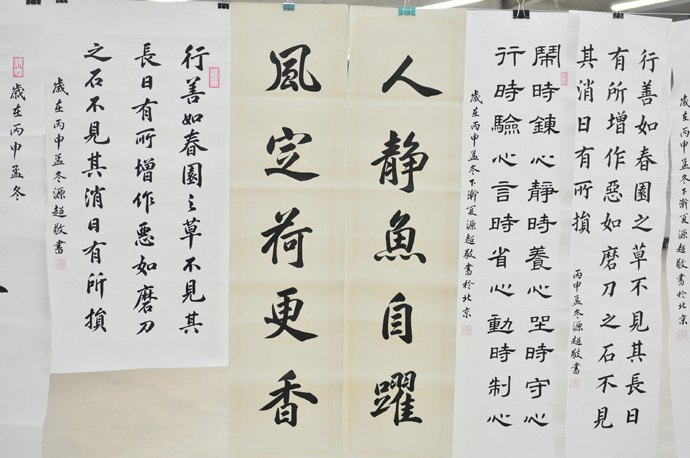 歲在丙申孟冬下瀚夏源超敬書於北京
行善如春園之草不見其長日
有所增作惡如磨刀之石不見
其消日有所損
丙申孟冬源超敬書
鬧時鍊心靜時養心坐時守心
行時驗心言時省心動時制心
歲在丙申孟冬下瀚夏源超敬書於北京
人靜魚自躍
風定荷更香
行善如春園之草不見其
長日有所增作惡如磨刀
之石不見其消日有所損
歲在丙申孟冬源超敬書
歲在丙申孟冬